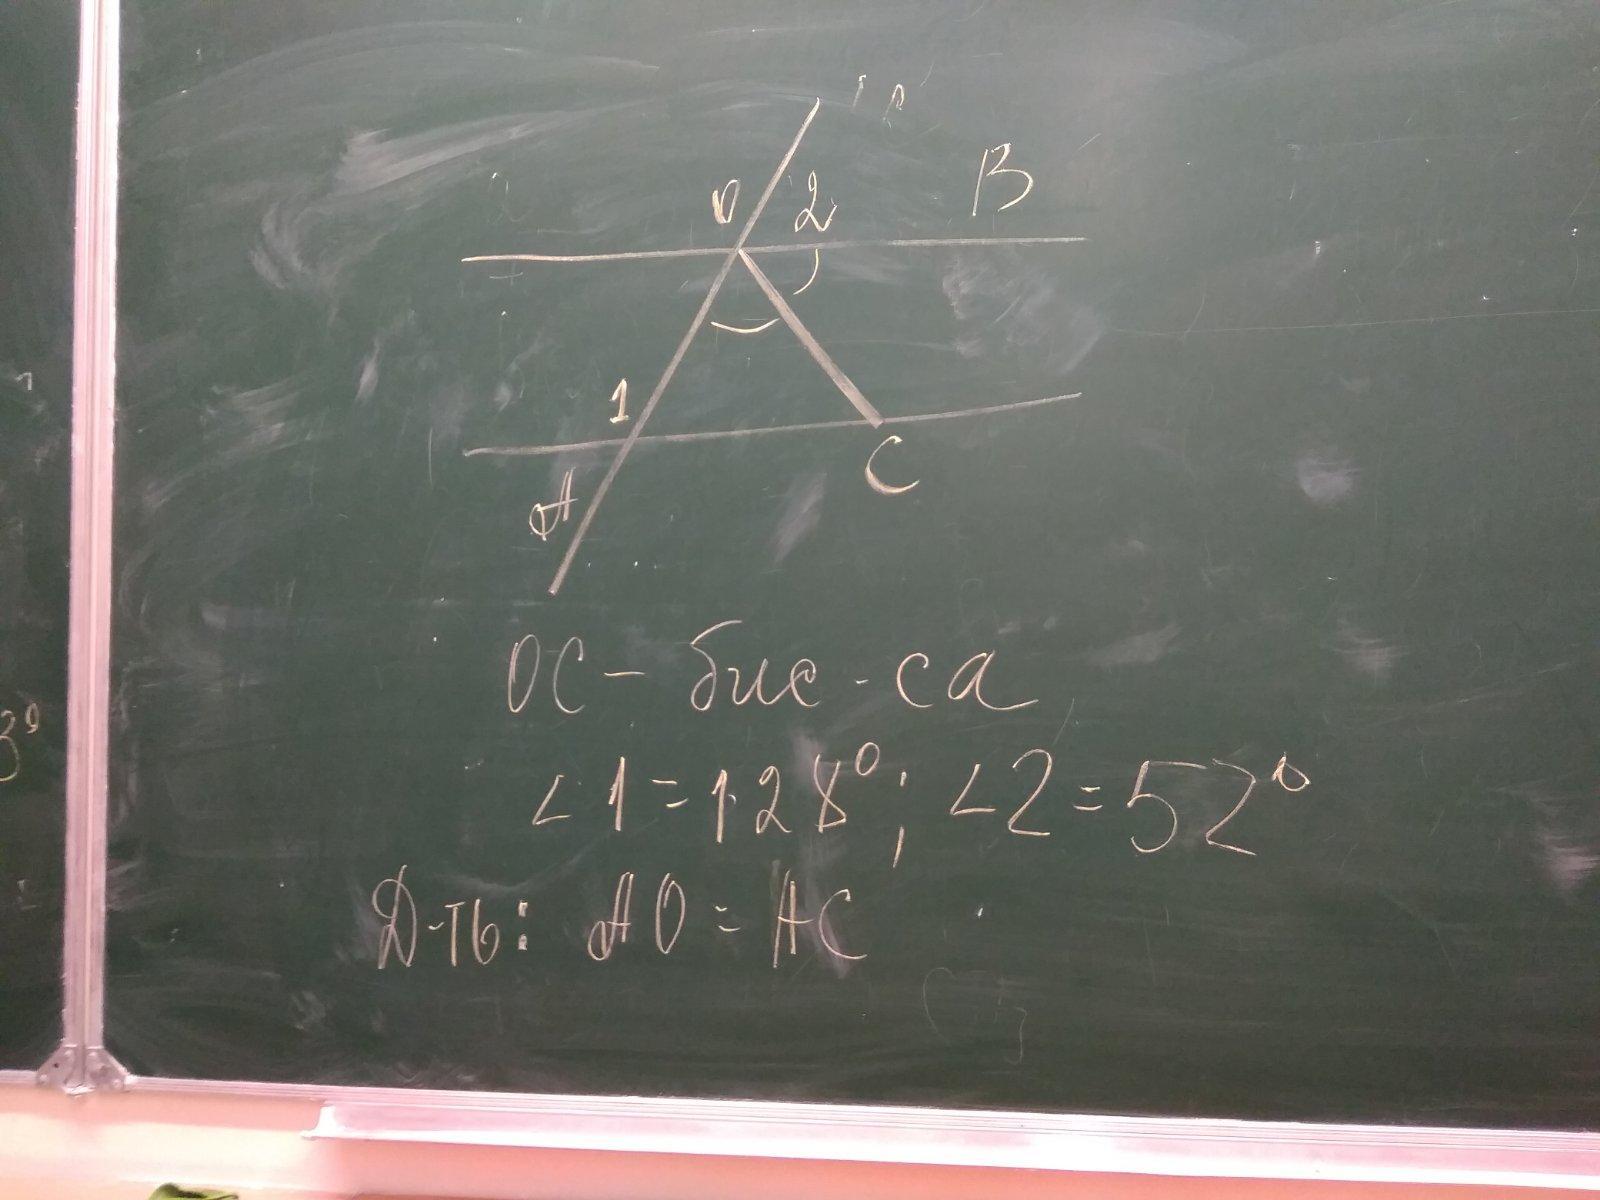 O 2 B
1
A C
OC - бис-са
∠1 = 128°; ∠2 = 52°
Д-ть: AO = AC